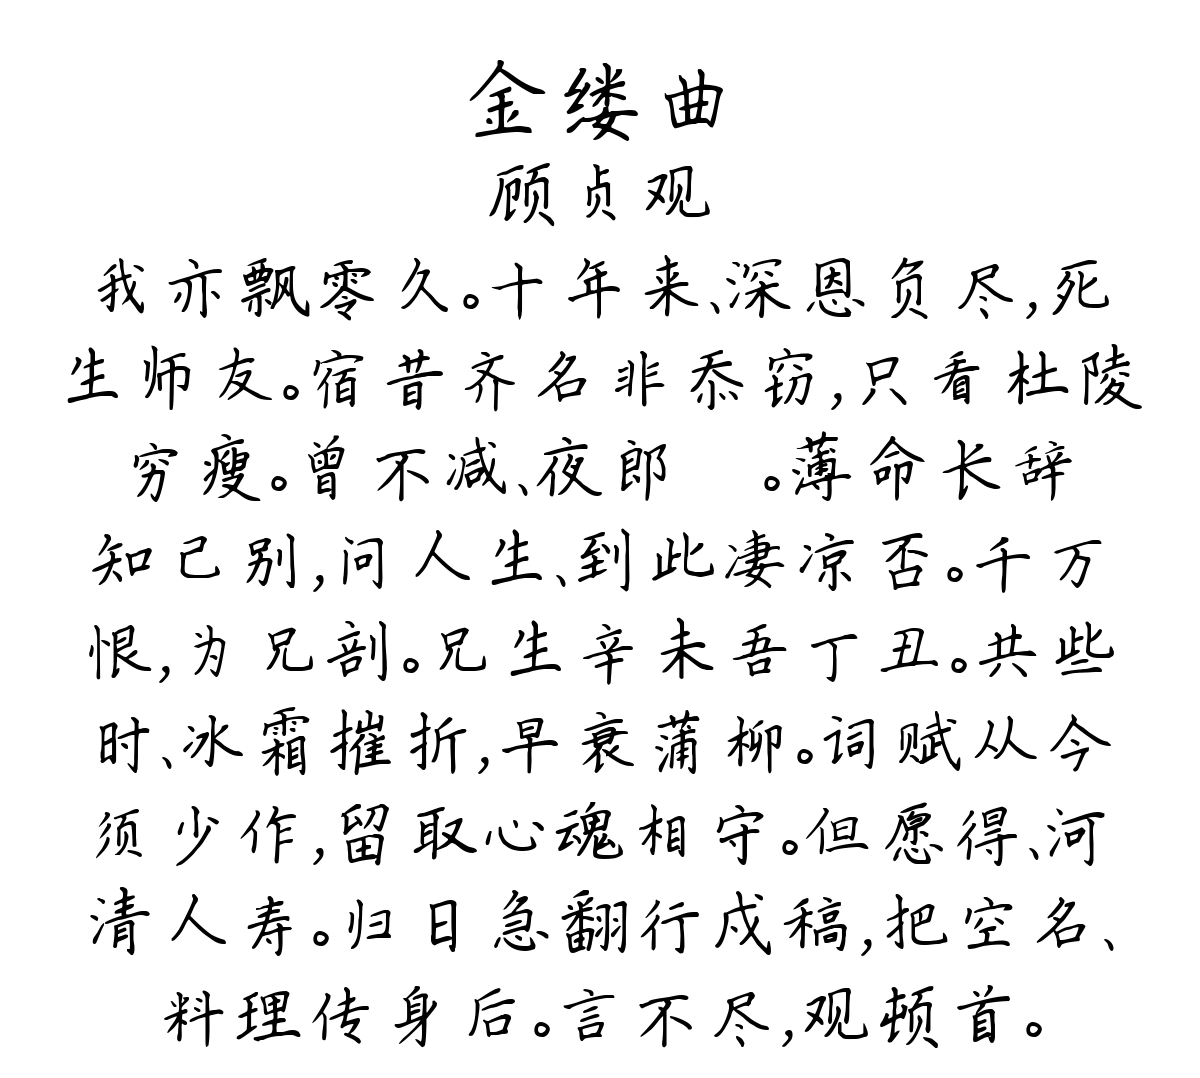 金缕曲
顾贞观
我亦飘零久。十年来、深恩负尽,死
生师友。宿昔齐名非忝窃,只看杜陵
穷瘦。曾不减、夜郎 。薄命长辞
知己别,问人生、到此凄凉否。千万
恨,为兄剖。兄生辛未吾丁丑。共些
时、冰霜摧折,早衰蒲柳。词赋从今
须少作,留取心魂相守。但愿得、河
清人寿。归日急翻行戍稿,把空名、
料理传身后。言不尽,观顿首。